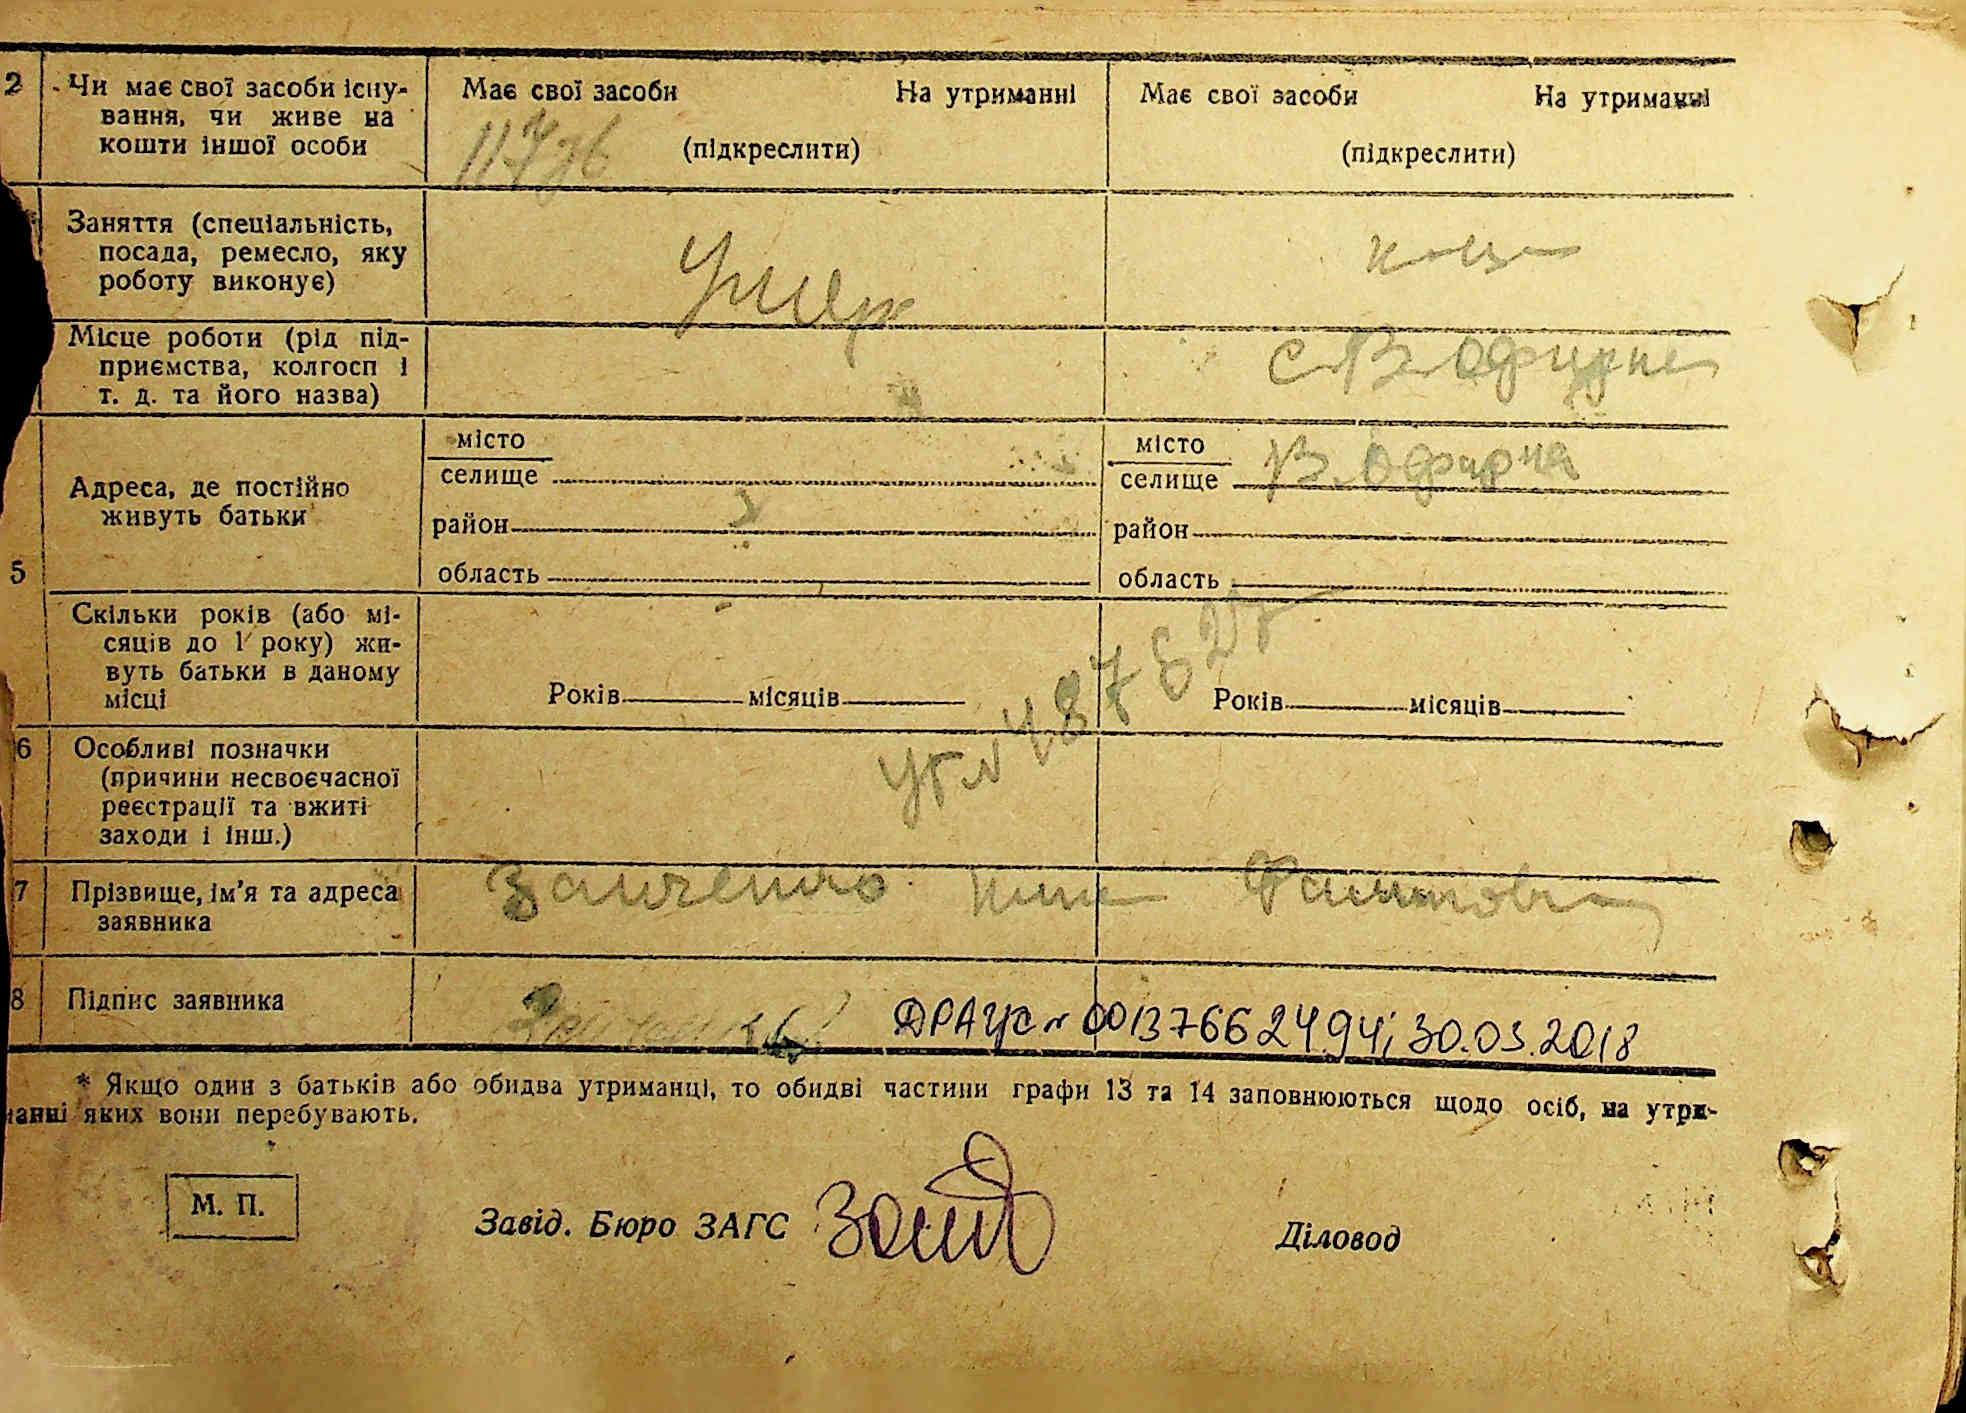 2 Чи має свої засоби існу-
вання, чи живе на
кошти іншої особи
Має свої засоби На утриманні
(підкреслити)
Має свої засоби На утриманні
(підкреслити)
Заняття (спеціальність,
посада, ремесло, яку
роботу виконує)
Умер
Місце роботи (рід під-
приємства, колгосп і
т. д. та його назва)
Адреса, де постійно
живуть батьки
місто
селище
район
область
місто
селище
район
область
5
Скільки років (або мі-
сяців до 1 року) жи-
вуть батьки в даному
місці
Років місяців
Років місяців
6 Особливі позначки
(причини несвоєчасної
реєстрації та вжиті
заходи і інш.)
7 Прізвище, ім'я та адреса
заявника
8 Підпис заявника
ДРАЦС № 00137662494; 30.03.2018
* Якщо один з батьків або обидва утриманці, то обидві частини графи 13 та 14 заповнюються щодо осіб, на утри-
манні яких вони перебувають.
М. П.
Завід. Бюро ЗАГС
Діловод